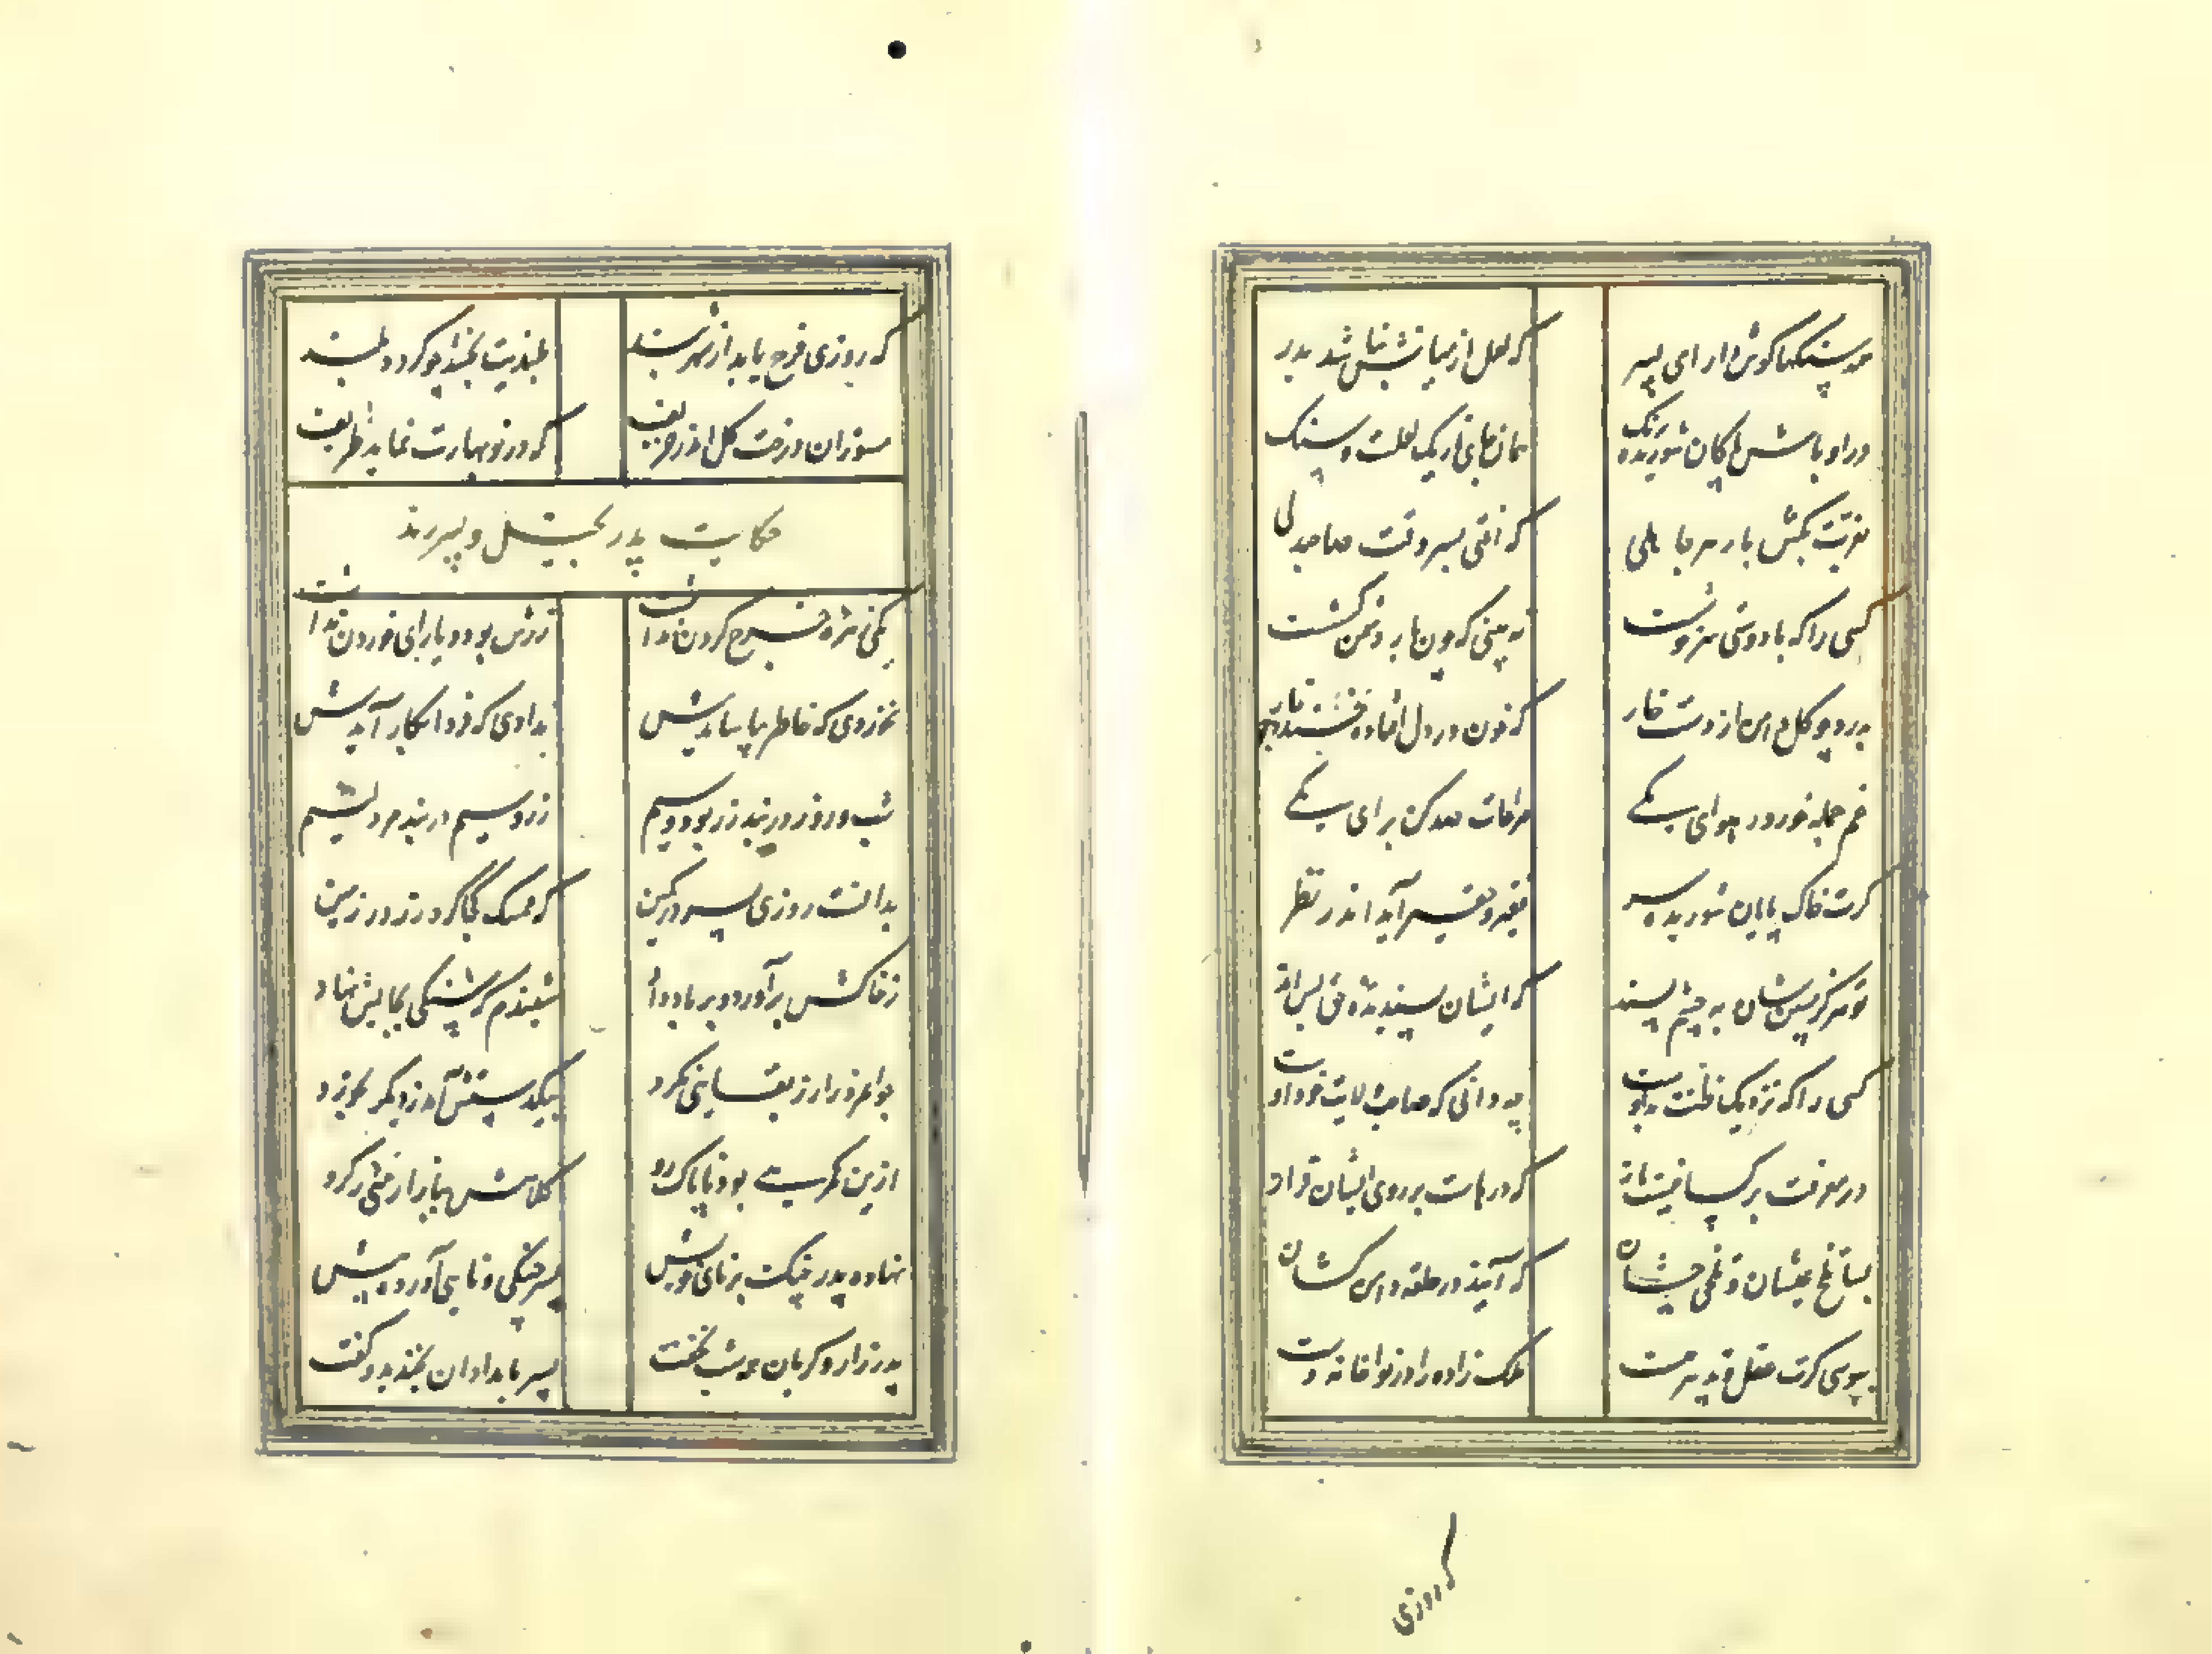 همه سنگها گوش دار ای پسر
که لعل از میانش نباشد بدر
در اوباش پاکان شوریده رنگ
همان جای تاریک لعلست و سنگ
بعزت بکش بار هر جاهلی
که افتی بسر وقت صاحبدلی
کسی را که با دوستی سرخوشست
نه بینی که چون بار دشمن کشست
بدرد چو گل دامن از دست خار
که خون در دل افتاده خندد چو نار
غم جمله خور در هوای یکی
مراعات صد کن برای یکی
گرت خاک پایان شوریده سر
فقیر و حقیر آید اندر نظر
تو هرگز مبین شان به چشم پسند
که ایشان پسندیده حق بس‌اند
کسی را که نزدیک ظنت بد اوست
چه دانی که صاحب ولایت خود اوست
در معرفت بر کسانیست باز
که درهاست بر روی ایشان فراز
بسا تلخ عیشان و تلخی چشان
که آیند در حله دامن کشان
ببوسی گرت عقل و تدبیر هست
ملک زاده را در نواخانه دست
که روزی
که روزی فرج یابد از شهربند
بلندیت بخشد چو گردد بلند
مسوزان درخت گل اندر خریف
که در نوبهارت نماید ظریف
حکایت پدر بخیل و پسر رند
یکی زهره خرج کردن نداشت
زرش بود و یارای خوردن نداشت
نخوردی که خاطر بیاسایدش
ندادی که فردا بکار آیدش
شب و روز در بند زر بود و سیم
زر و سیم در بند مرد لئیم
بدانست روزی پسر در کمین
که ممسک کجا کرد زر در زمین
ز خاکش برآورد و بر باد داد
شنیدم که سنگی بجایش نهاد
جوانمرد را زر بقایی نکرد
بیکدستش آمد ز دیگر بخورد
ازین کمرنی بود ناپاک رو
کلاهش ببازار و میزر گرو
نهاده پدر چنگ بر نای خویش
پسر چنگی و نایی آورده پیش
پدر زار و گریان همه شب نخفت
پسر بامدادان بخندید و گفت